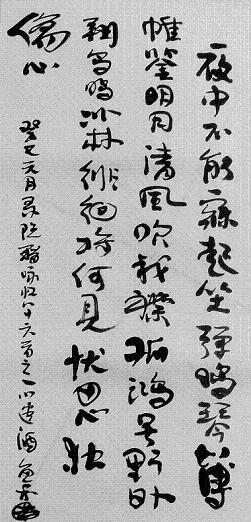 夜中不能寐起坐彈鳴琴薄
帷鑒明月清風吹我襟孤鴻号野外
翔鸟鳴北林徘徊將何見忧思独
傷心
癸巳元月录阮籍咏怀八十六首之一以遣酒